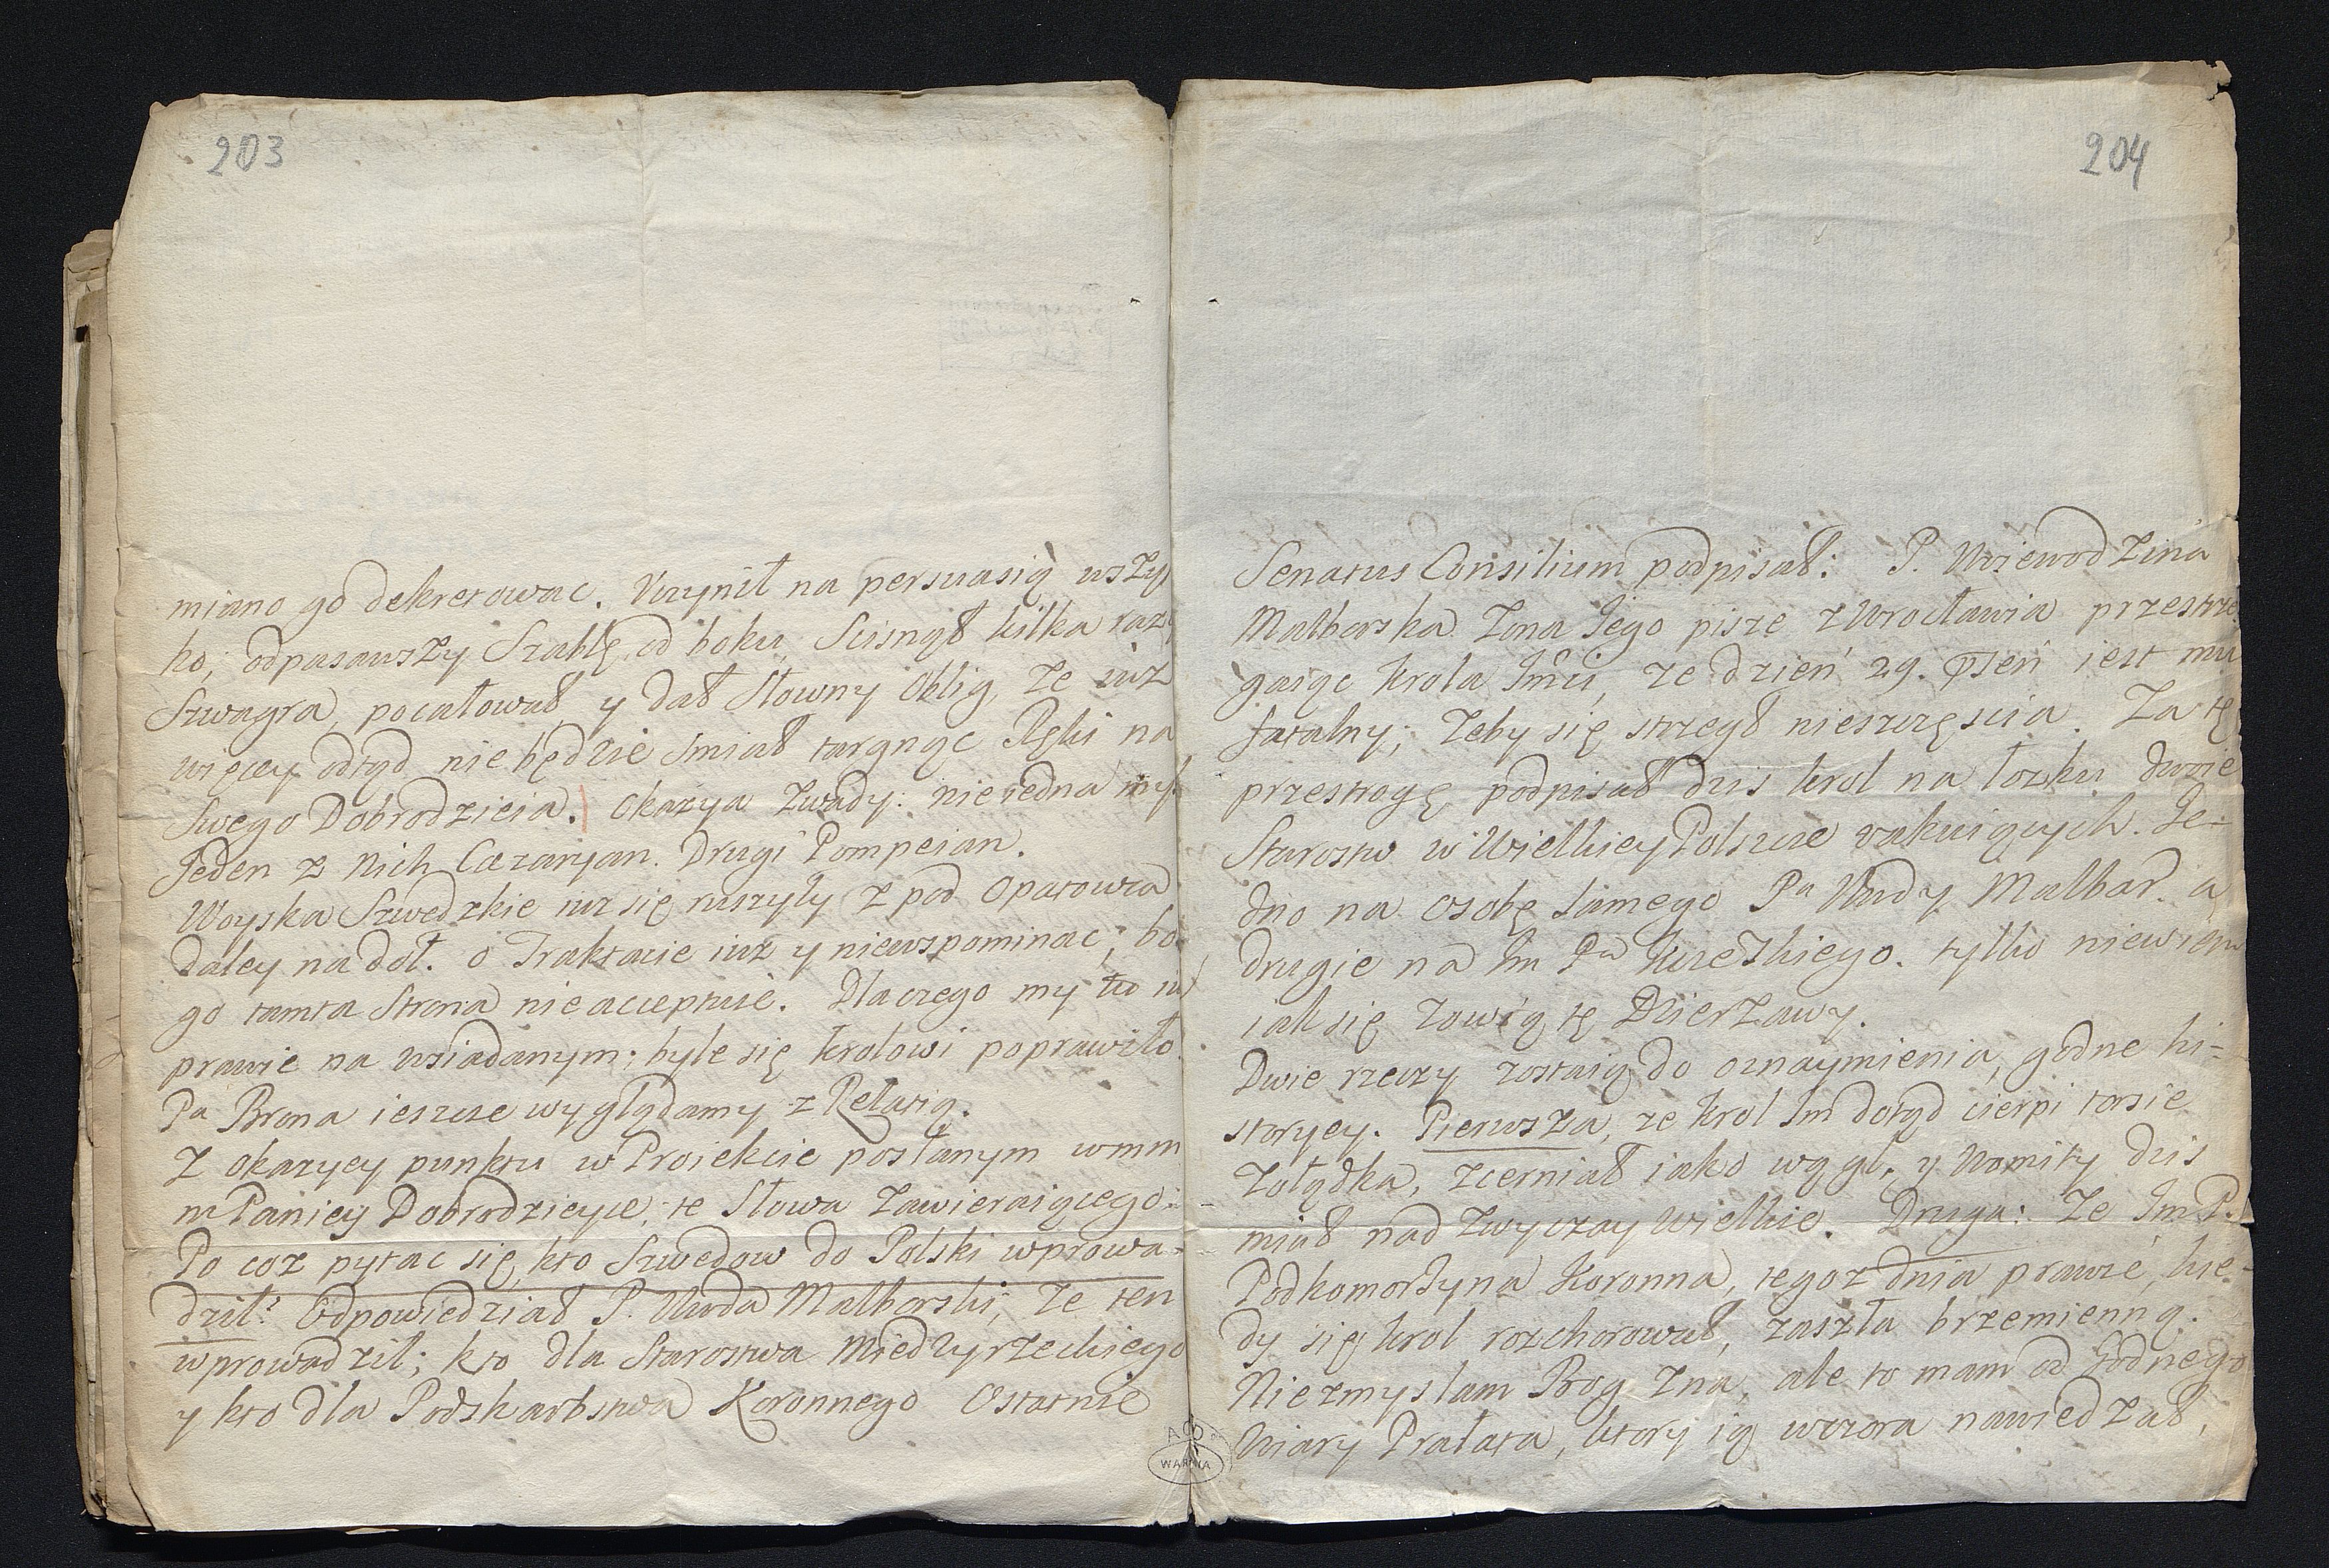 203
miano go dekretowac. Uczynił na persuasią wszy
ko, odpasawszy Szablę od boku, Scisnął kilka razy
Szwagra, pocałował y dał Słowny Oblig, Ze iuz
więcey odtąd nie będzie smiał targnąc Ręki na
Swego Dobrodzieia. Okazya Zwady: nie iedna myśl
Jeden z Nich Caezaryan. Drugi Pompeian.
Woyska Szwedzkie iuz się ruszyły z pod Opatowca
daley na doł. o Traktacie iuz y niewspominac, bo
go tamta Strona nie acceptuie. Dlaczego my tu iu
prawie na wsiadanym; byle się krolowi poprawiło.
Pa Brona ieszcze wyglądamy z Relatią.
Z okazyey punktu w Proiekcie posłanym wmm
m Paniey Dobrodzieyce, te Słowa Zawieraiącego:
Po coz pytac się kto Szwedow do Polski wprowa-
dził? Odpowiedział P. Wwoda Malborski, Ze ten
wprowadził; kto dla Starostwa Miedzyrzeckiego
y kto dla Podskarbstwa Koronnego Ostatnie
204
Senatus Consilium podpisał: P. Woiewodzina
Malborska Zona Jego pisze z Wrocławia przestrze
gaiąc krola Jmci, ze dzień 29. psen iest mu
fatalny; Zeby się strzegł nieszczęscia. Za tę
przestrogę podpisał dzis krol na łozku dwoie
Starostw w Wielkiey Polszcze vakuiących. Je-
dno na osobę samego Pa Wwdy Malbar. a
drugie na Im Pa tylko niewiem
iak się zowią tę Dzierzawy.
Dwie rzeczy zostaią do oznaymienia, godne hi-
storyey. Pierwsza, ze krol Im dotąd cierpi torsie
Zołądka, zczerniał iako wągl, y Womity dzis
miał nad Zwyczay wielkie. Druga: Ze Im P.
Podkomorzyna Koronna, tegoz dnia prawie, kie-
dy się krol rozchorował, zaszła brzemienną.
Niezmyslam Bog Zna, ale to mam od Godnego
Wiary Prałata, ktory ią wczora nawiedzał,
WARMIA